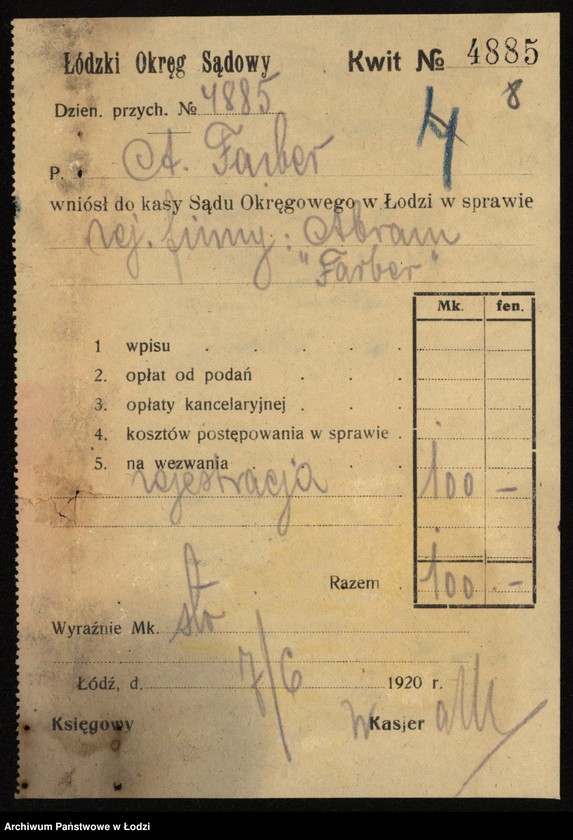 Łódzki Okręg Sądowy Kwit № 4885
8
Dzien. przych. № 4885
4
P. A. Farber
wniósł do kasy Sądu Okręgowego w Łodzi w sprawie
rej. firmy: Abram
"Farber"
Mk. fen.
1 wpisu . . . . .
2. opłat od podań . . . .
3. opłaty kancelaryjnej . . .
4. kosztów postępowania w sprawie .
5. na wezwania . . . .
rejestracja 100 —
Razem . 100 . —
Wyraźnie Mk. sto
Łódź, d. 7/6 1920 r.
Księgowy Kasjer
Archiwum Państwowe w Łodzi